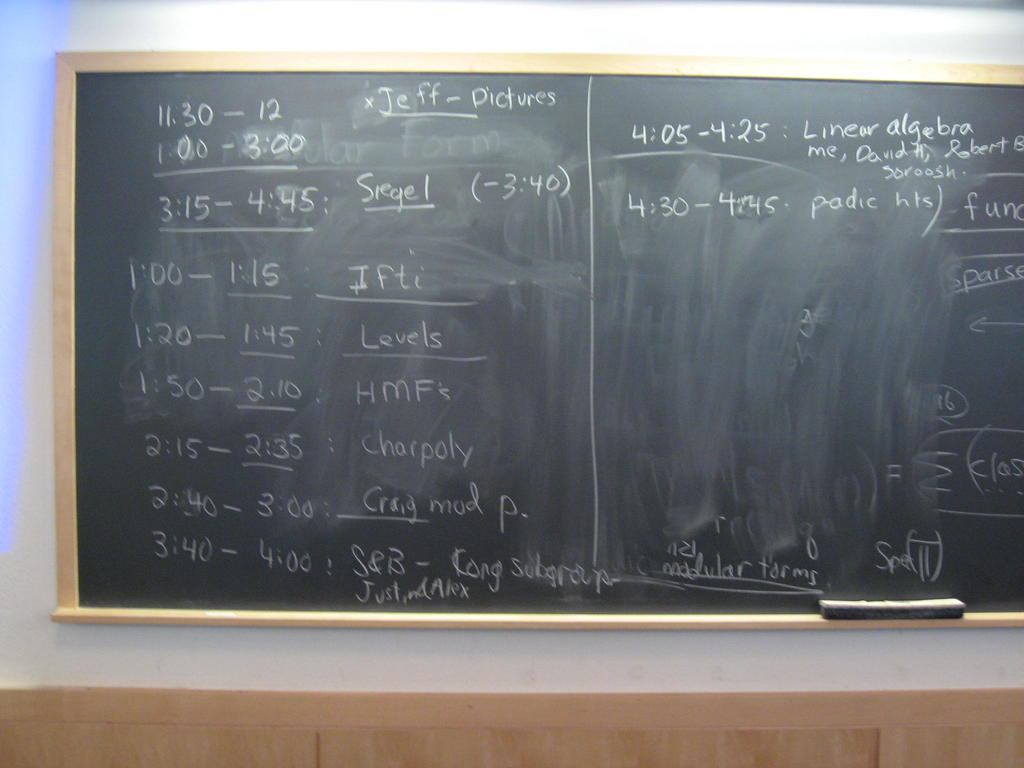 11:30 - 12 x Jeff - Pictures
1:00 - 3:00
3:15 - 4:45: Siegel (-3:40)
1:00 - 1:15 : Ifti
1:20 - 1:45 : Levels
1:50 - 2:10 : HMF's
2:15 - 2:35 : Charpoly
2:40 - 3:00: Craig mod p.
3:40 - 4:00: S&B - Cong subgroup
Justin and Alex
4:05 - 4:25 : Linear algebra
me, David H, Robert B
Soroosh.
4:30 - 4:45. padic hts)
func
sparse
16
F
(clas
modular forms
Spec(T)